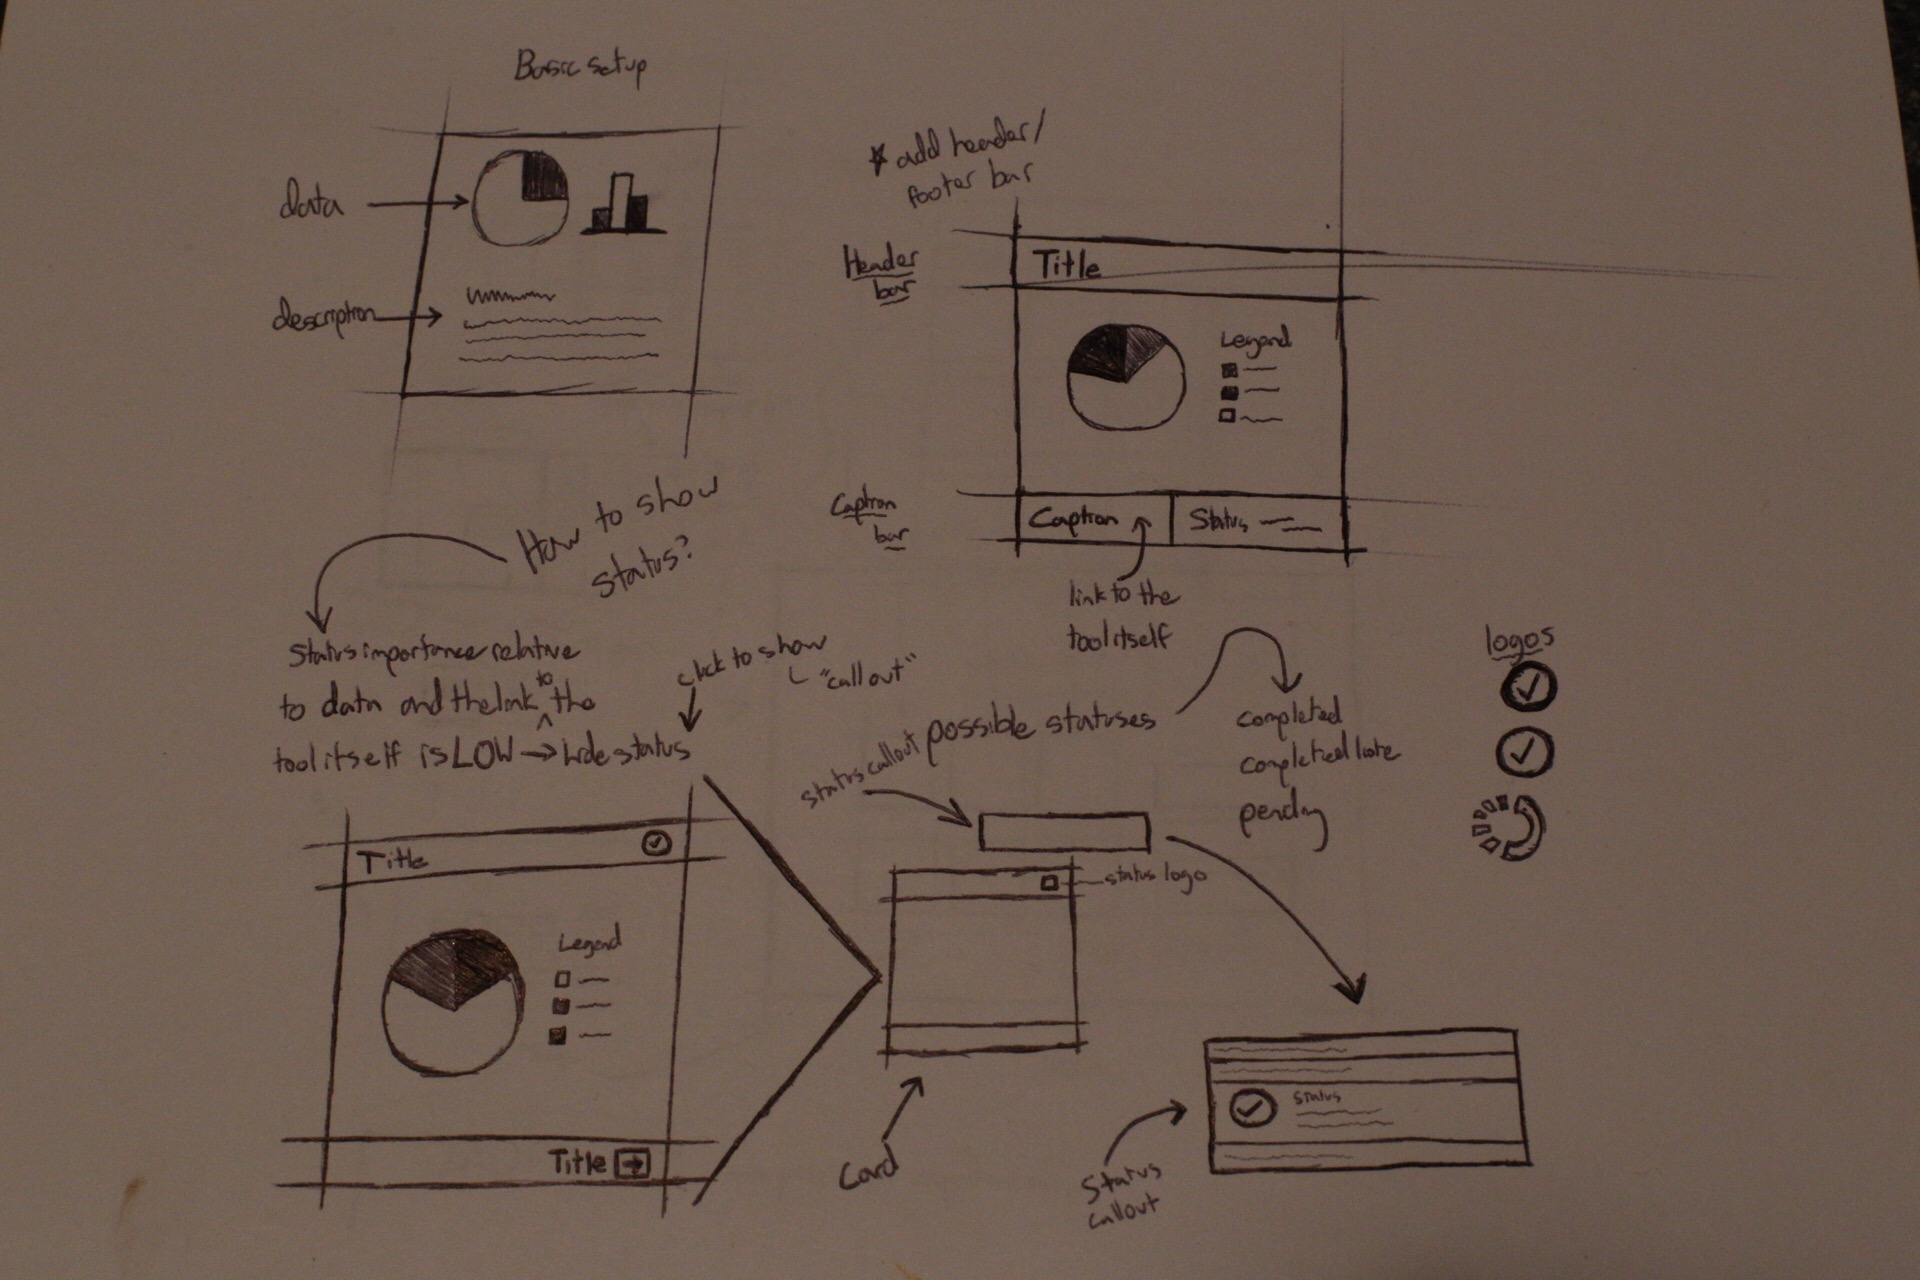 Basic setup
data
description
* add header/
footer bar
Header
bar
Title
Legend
Caption
bar
Caption
Status
link to the
tool itself
How to show
status?
Status importance relative
to data and the link to the
tool itself is LOW → hide status
click to show
"callout"
possible statuses
completed
completed late
pending
logos
Title
Legend
Title
status callout
status logo
Card
Status
callout
status